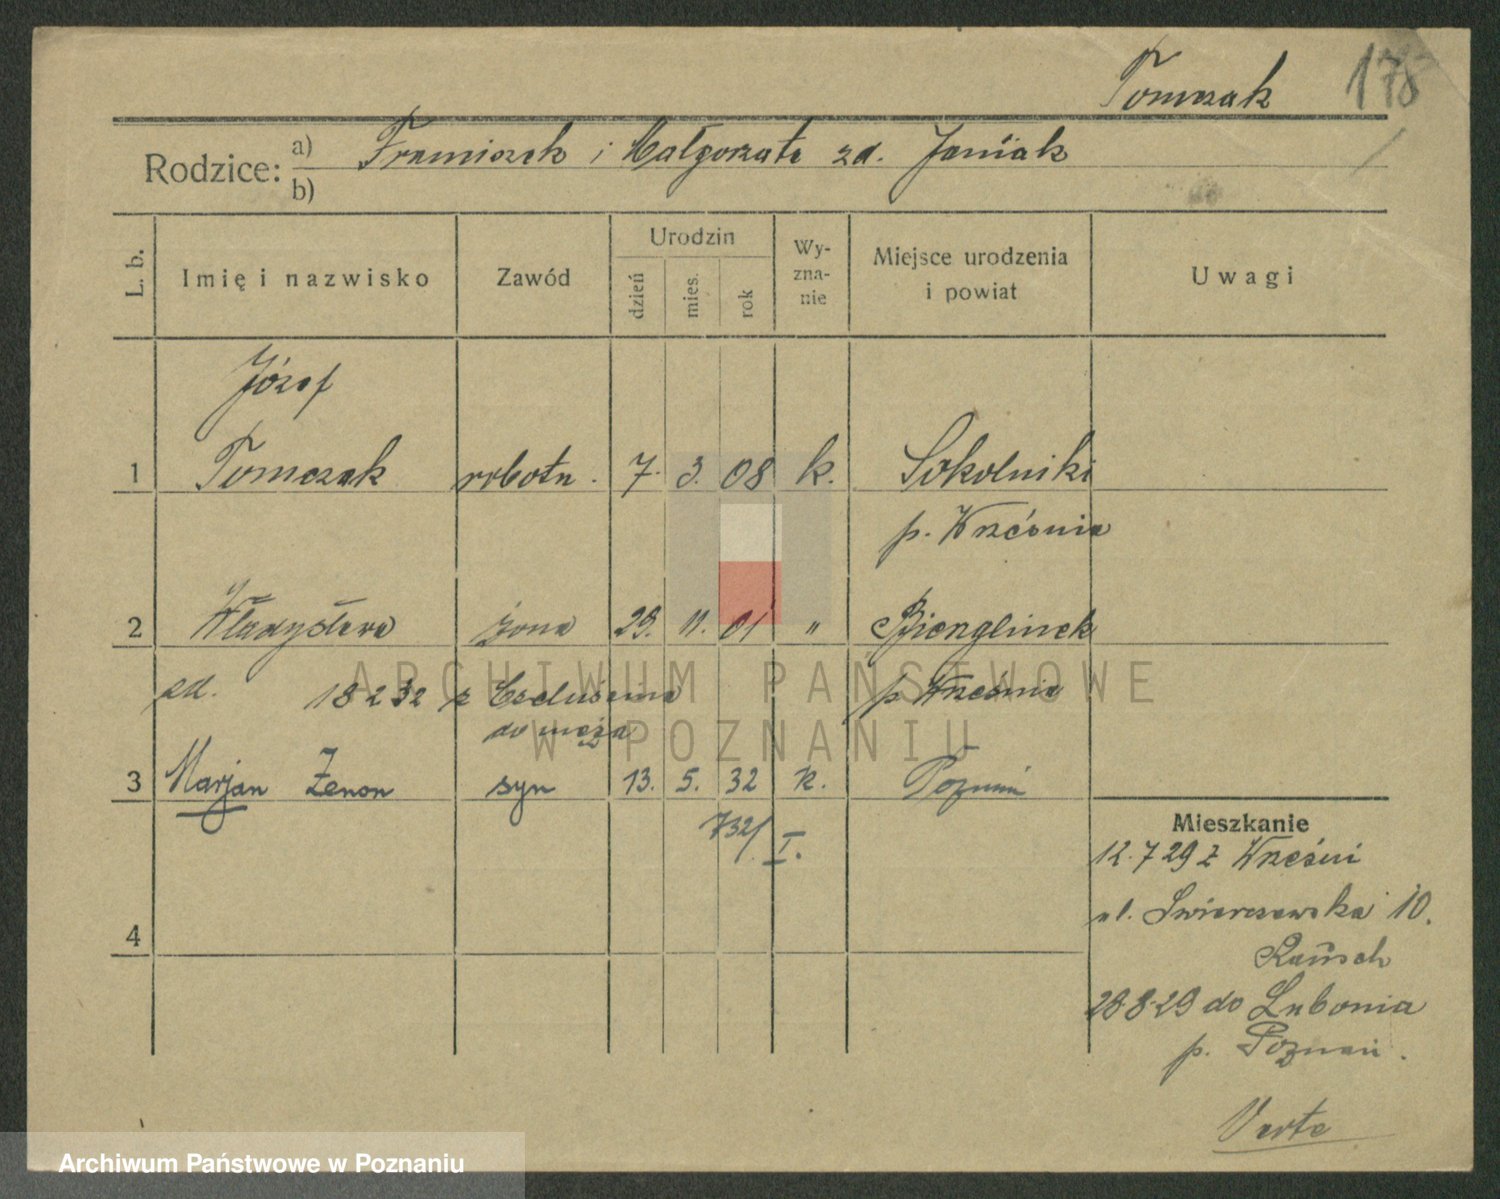 Tomczak 178
Rodzice: a) Franciszek i Małgorzata zd. Janiak
b)
L. b. Imię i nazwisko Zawód Urodzin dzień mies. rok Wy-zna-nie Miejsce urodzenia i powiat Uwagi
Józef
1 Tomczak robotn. 7. 3. 08 k. Sokolniki
p. Września
2 Władysława żona 29. 11. 01 " Bienglinek
zd. 18 2 32 z p Września
do męża
3 Marjan Zenon syn 13. 5. 32 k. Poznań
732/I.
Mieszkanie
12.7 29 z Wrześni
ul. Swierczewska 10.
4
Rausch
28.8.29 do Lubonia
p. Poznań.
Verte
ARCHIWUM PAŃSTWOWE
W POZNANIU
Archiwum Państwowe w Poznaniu